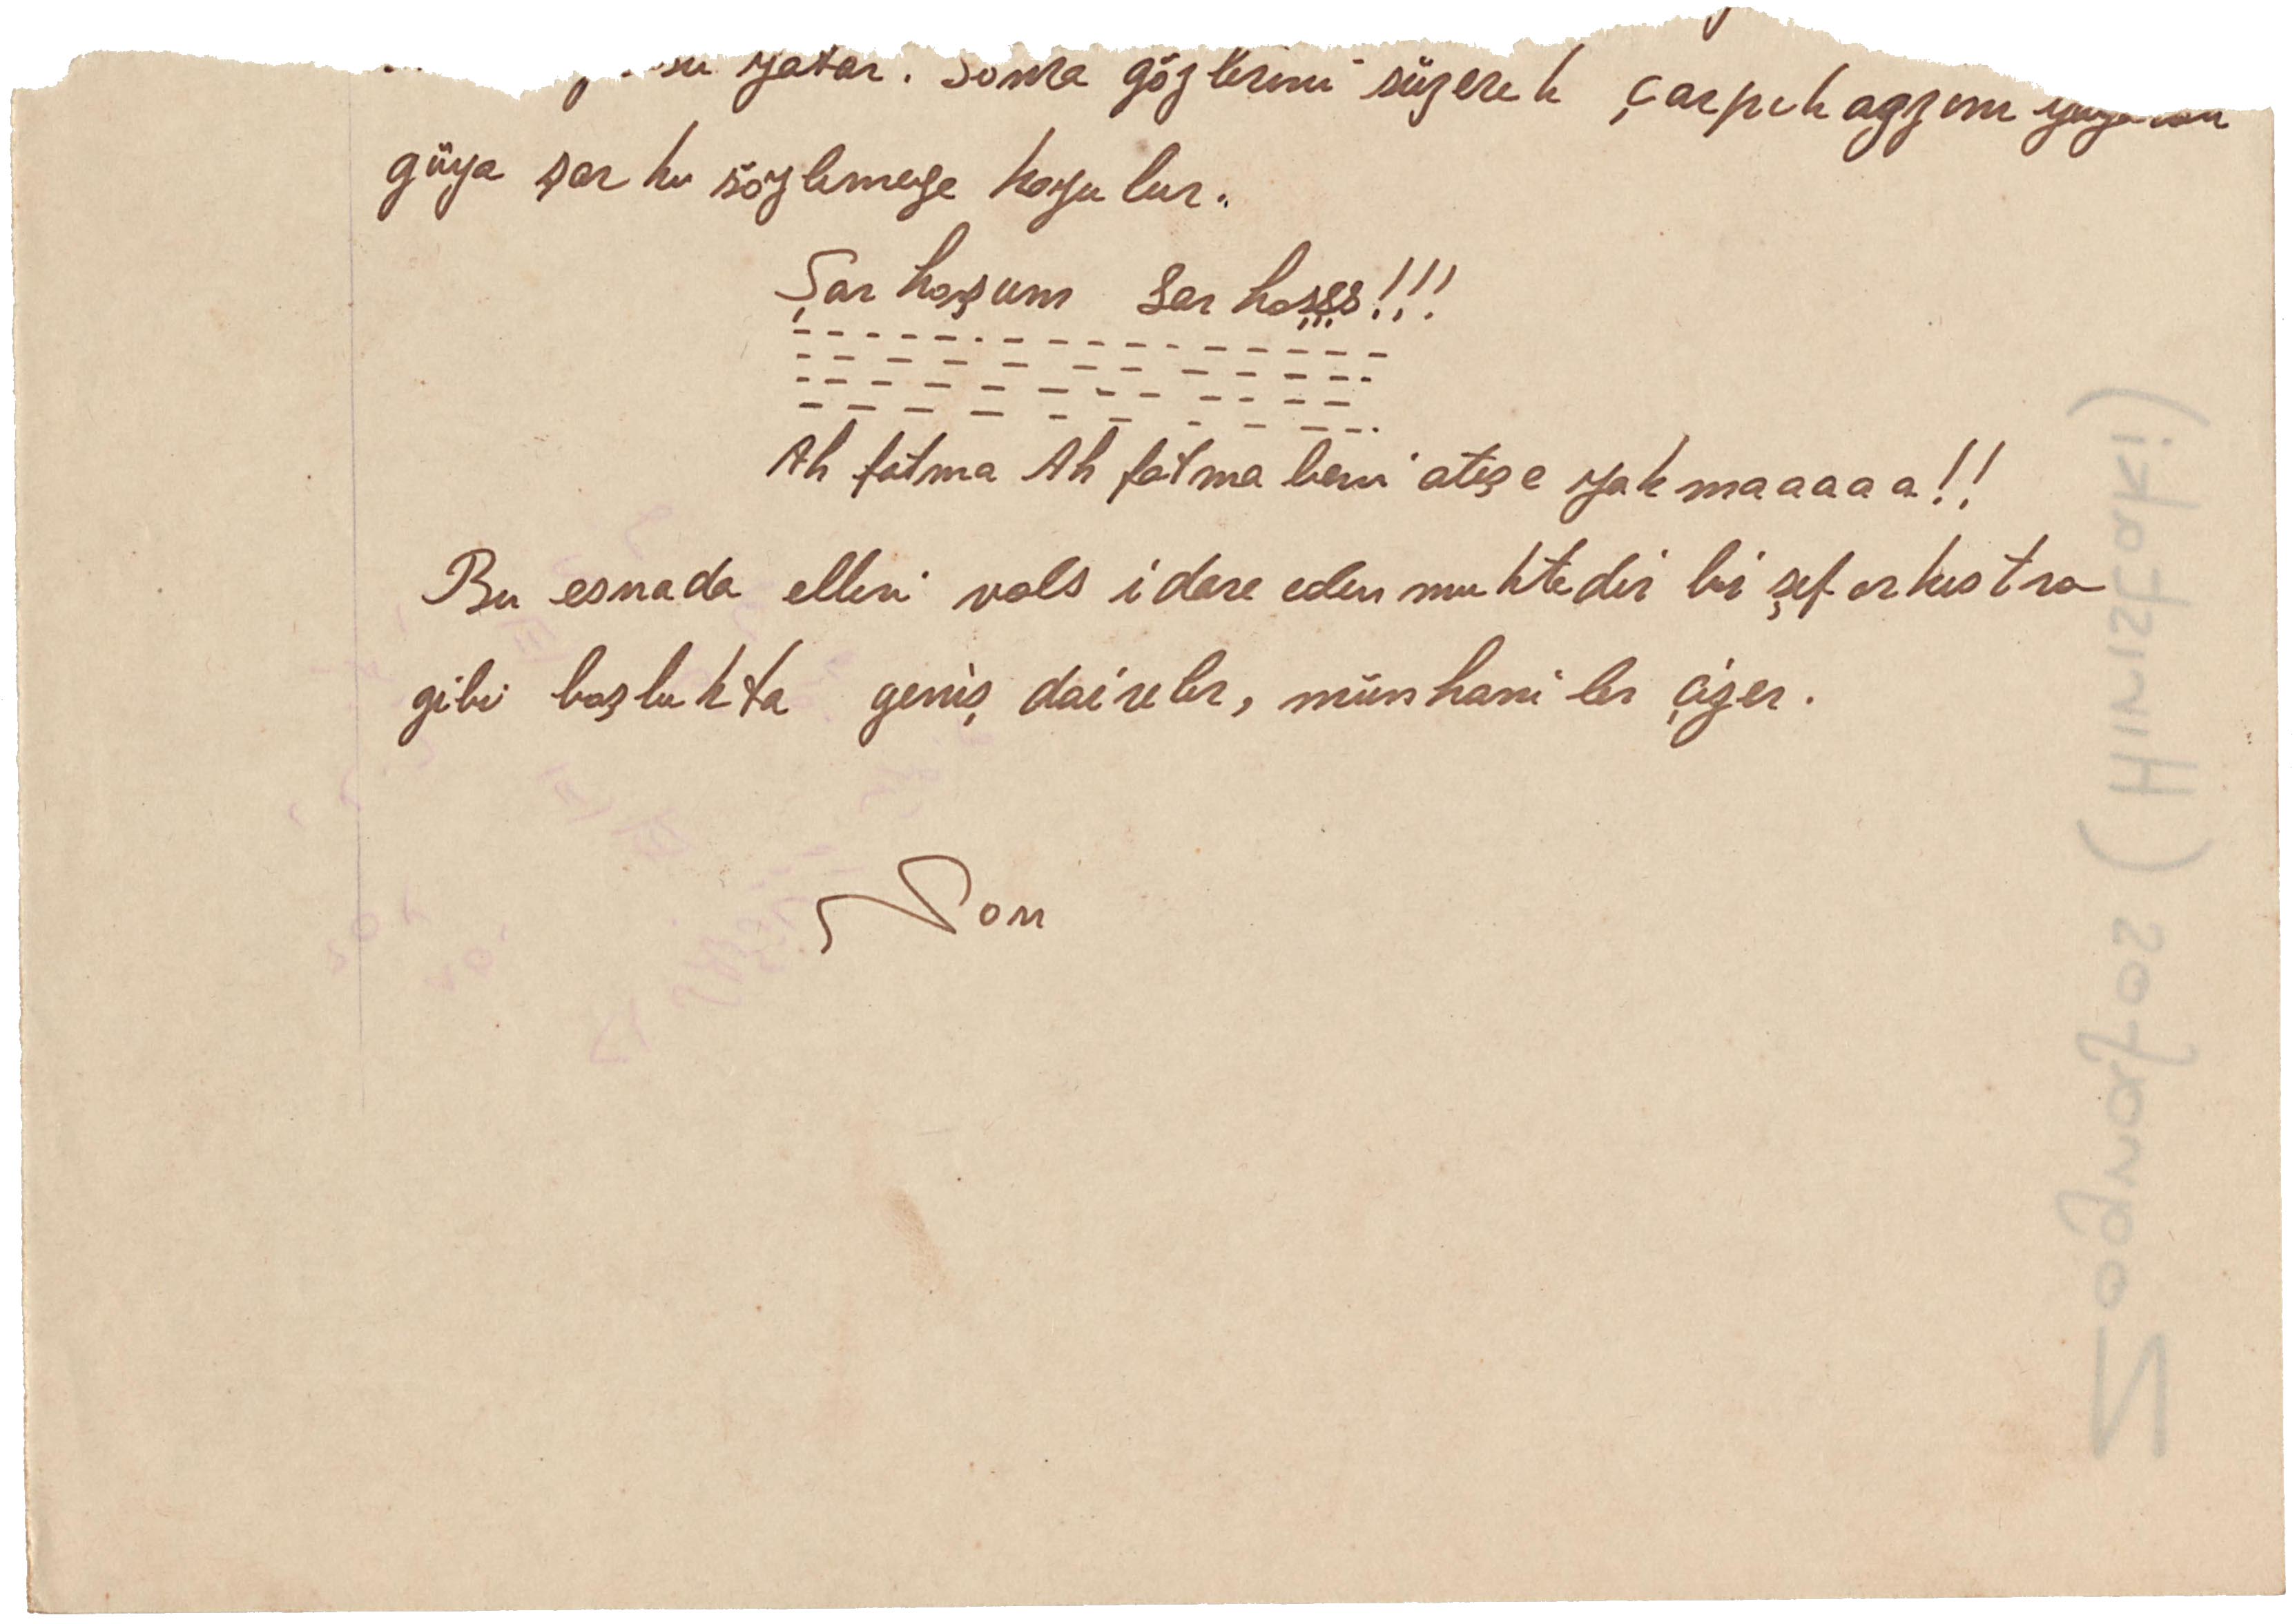 yatar. Sonra gözlerini süzerek çarpık ağzını
güya şarkı söylemeye koyulur.
Şarhoşum Sarhoşşş!!!
Ah fatma Ah fatma beni ateşe yakmaaaaa!!
Bu esnada elleri vals idare eden muktedir bi şef orkestra
gibi boşlukta geniş daireler, münhaniler çizer.
Son
Zognafos (Hınıstaki)